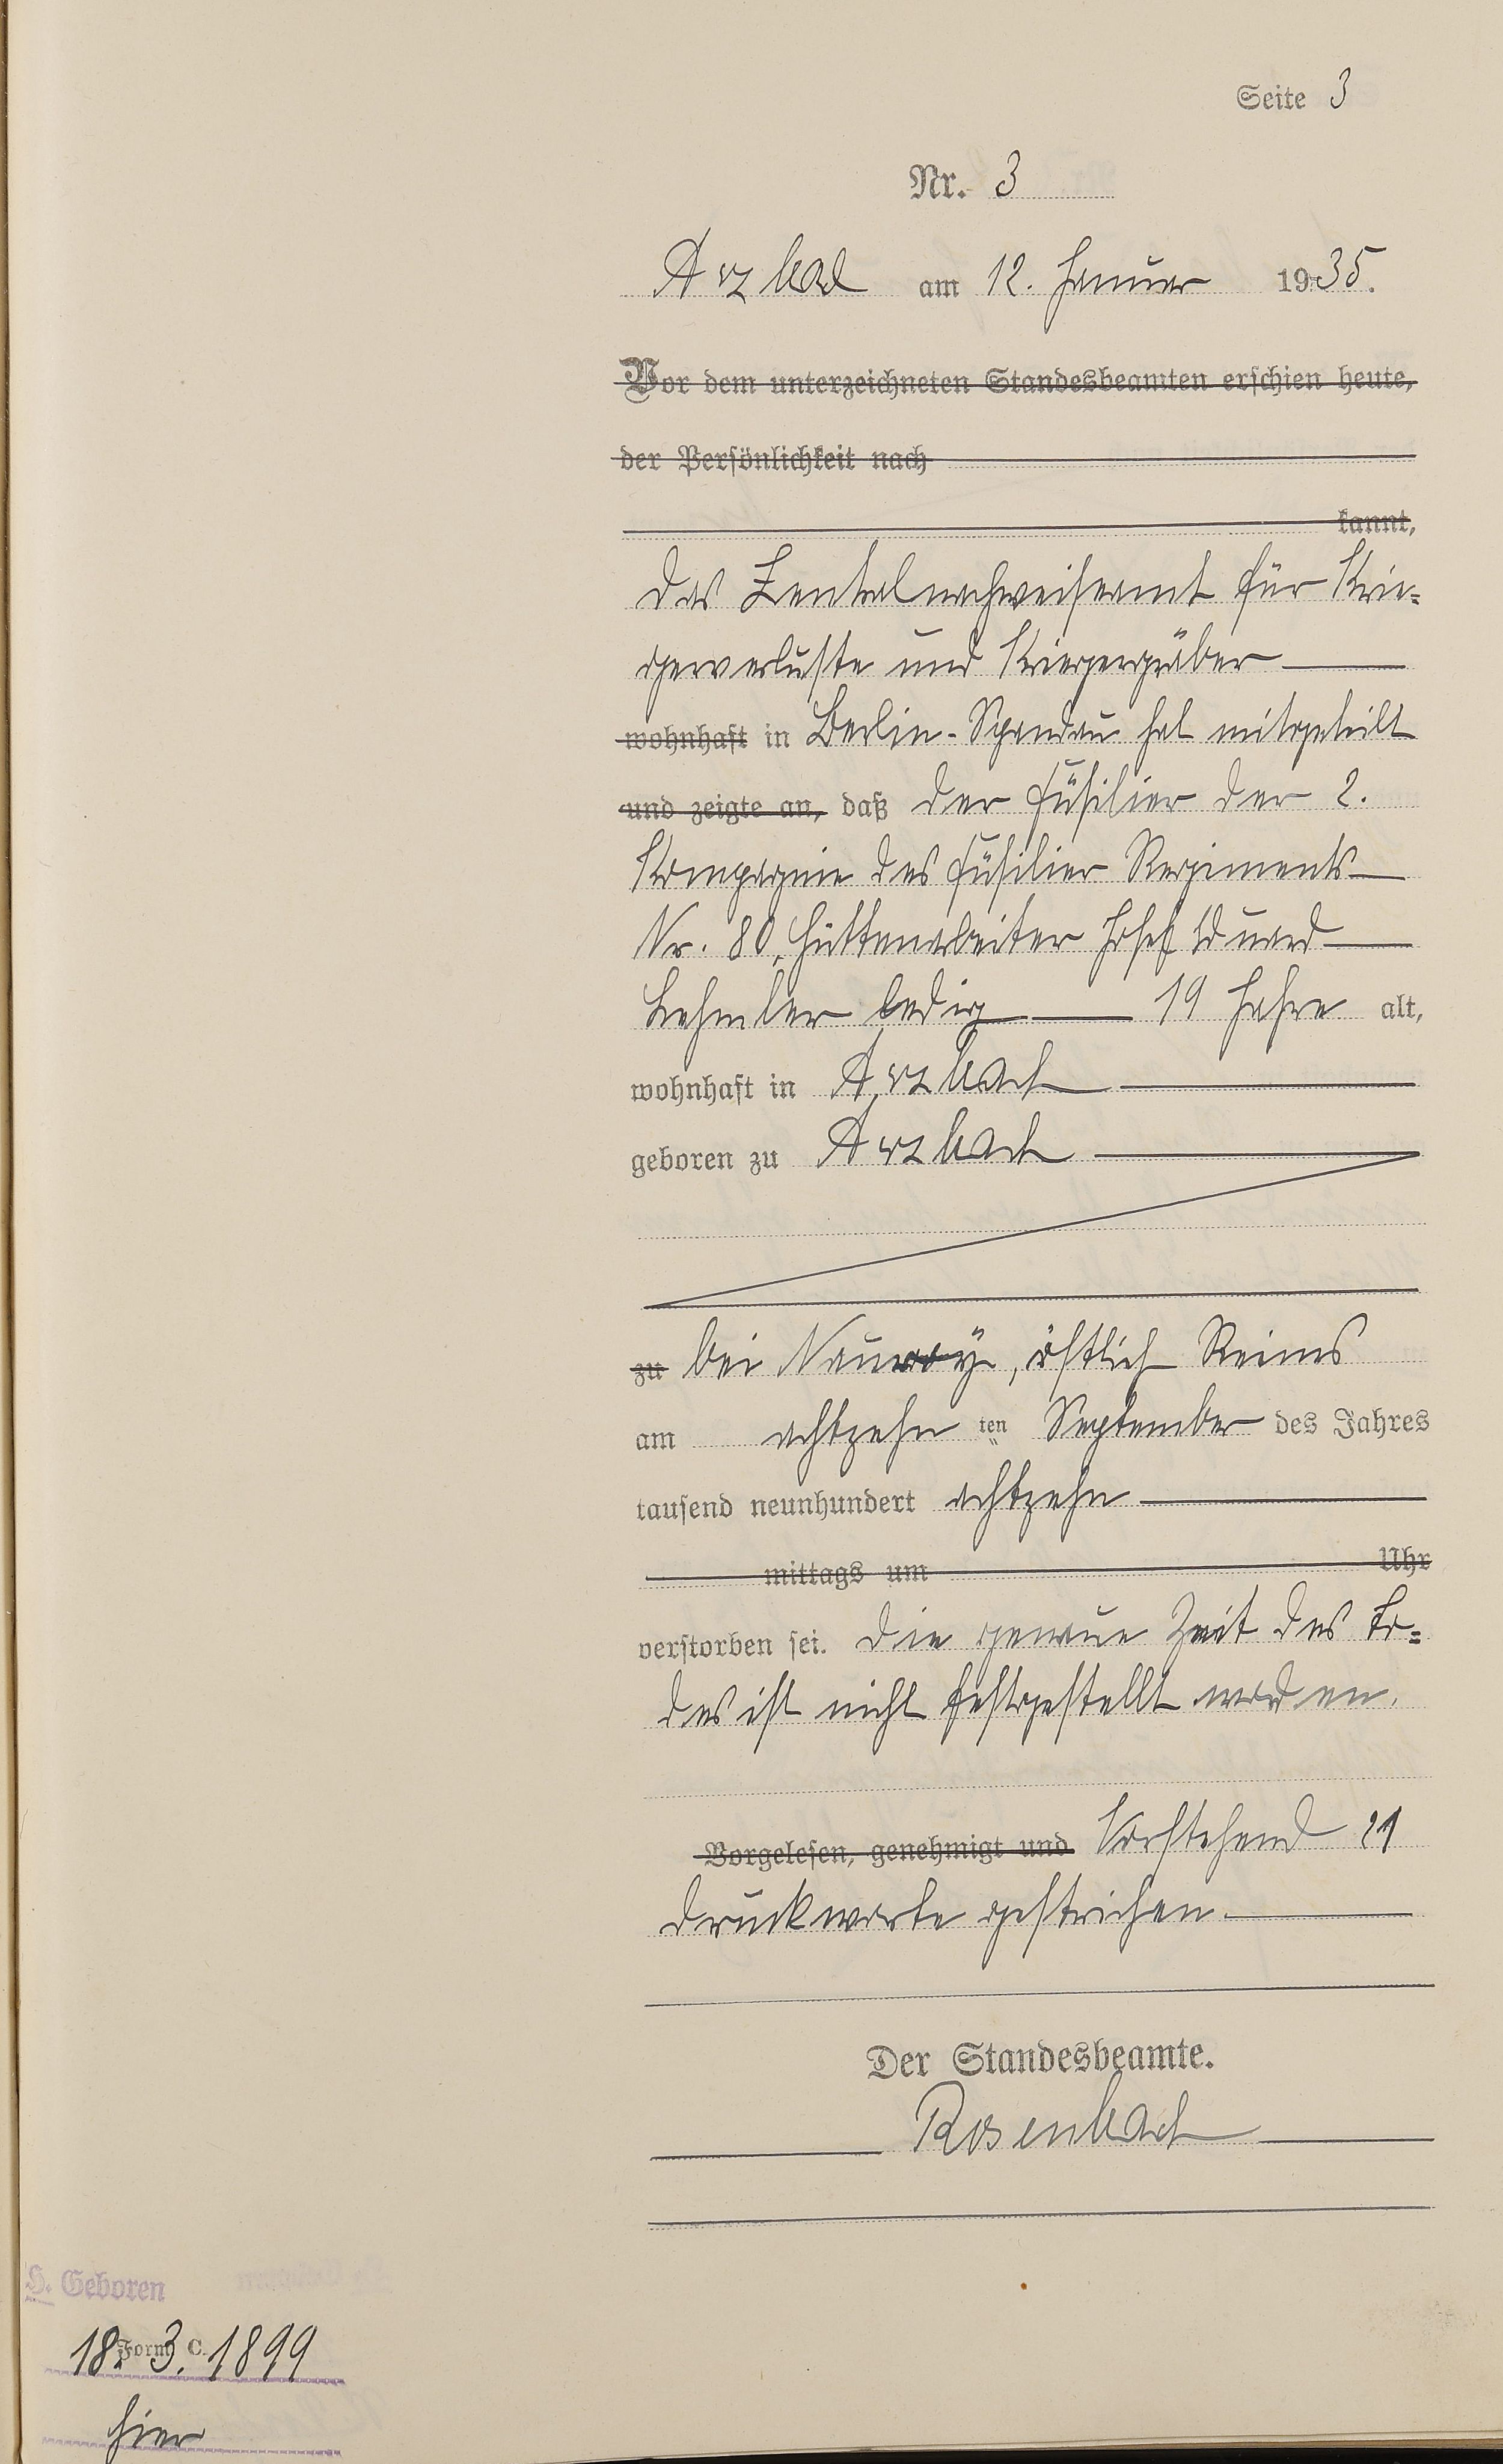 Seite 3
Nr. 3
Arzbach am 12. Januar 1935.
Vor dem unterzeichneten Standesbeamten erschien heute,
der Persönlichkeit nach
kannt,
Das Zentralnachweiseamt für Krie=
gerverluste und Kriegergräber
wohnhaft in Berlin-Spandau hat mitgeteilt
und zeigte an, daß der Füsilier der 2.
Kompagnie des Füsilier Regiments
Nr. 80, Hüttenarbeiter Josef Eduard
Lehmler ledig 19 Jahre alt,
wohnhaft in Arzbach
geboren zu Arzbach
zu bei Nauroy, östlich Reims
am achtzehn ten September des Jahres
tausend neunhundert achtzehn
mittags um Uhr
verstorben sei. Die genaue Zeit des To=
des ist nicht festgestellt worden.
Vorgelesen, genehmigt und Vorstehend 21
Druckworte gestrichen.
Der Standesbeamte.
Rosenbach
H. Geboren
Form C.
18. 3. 1899
hier